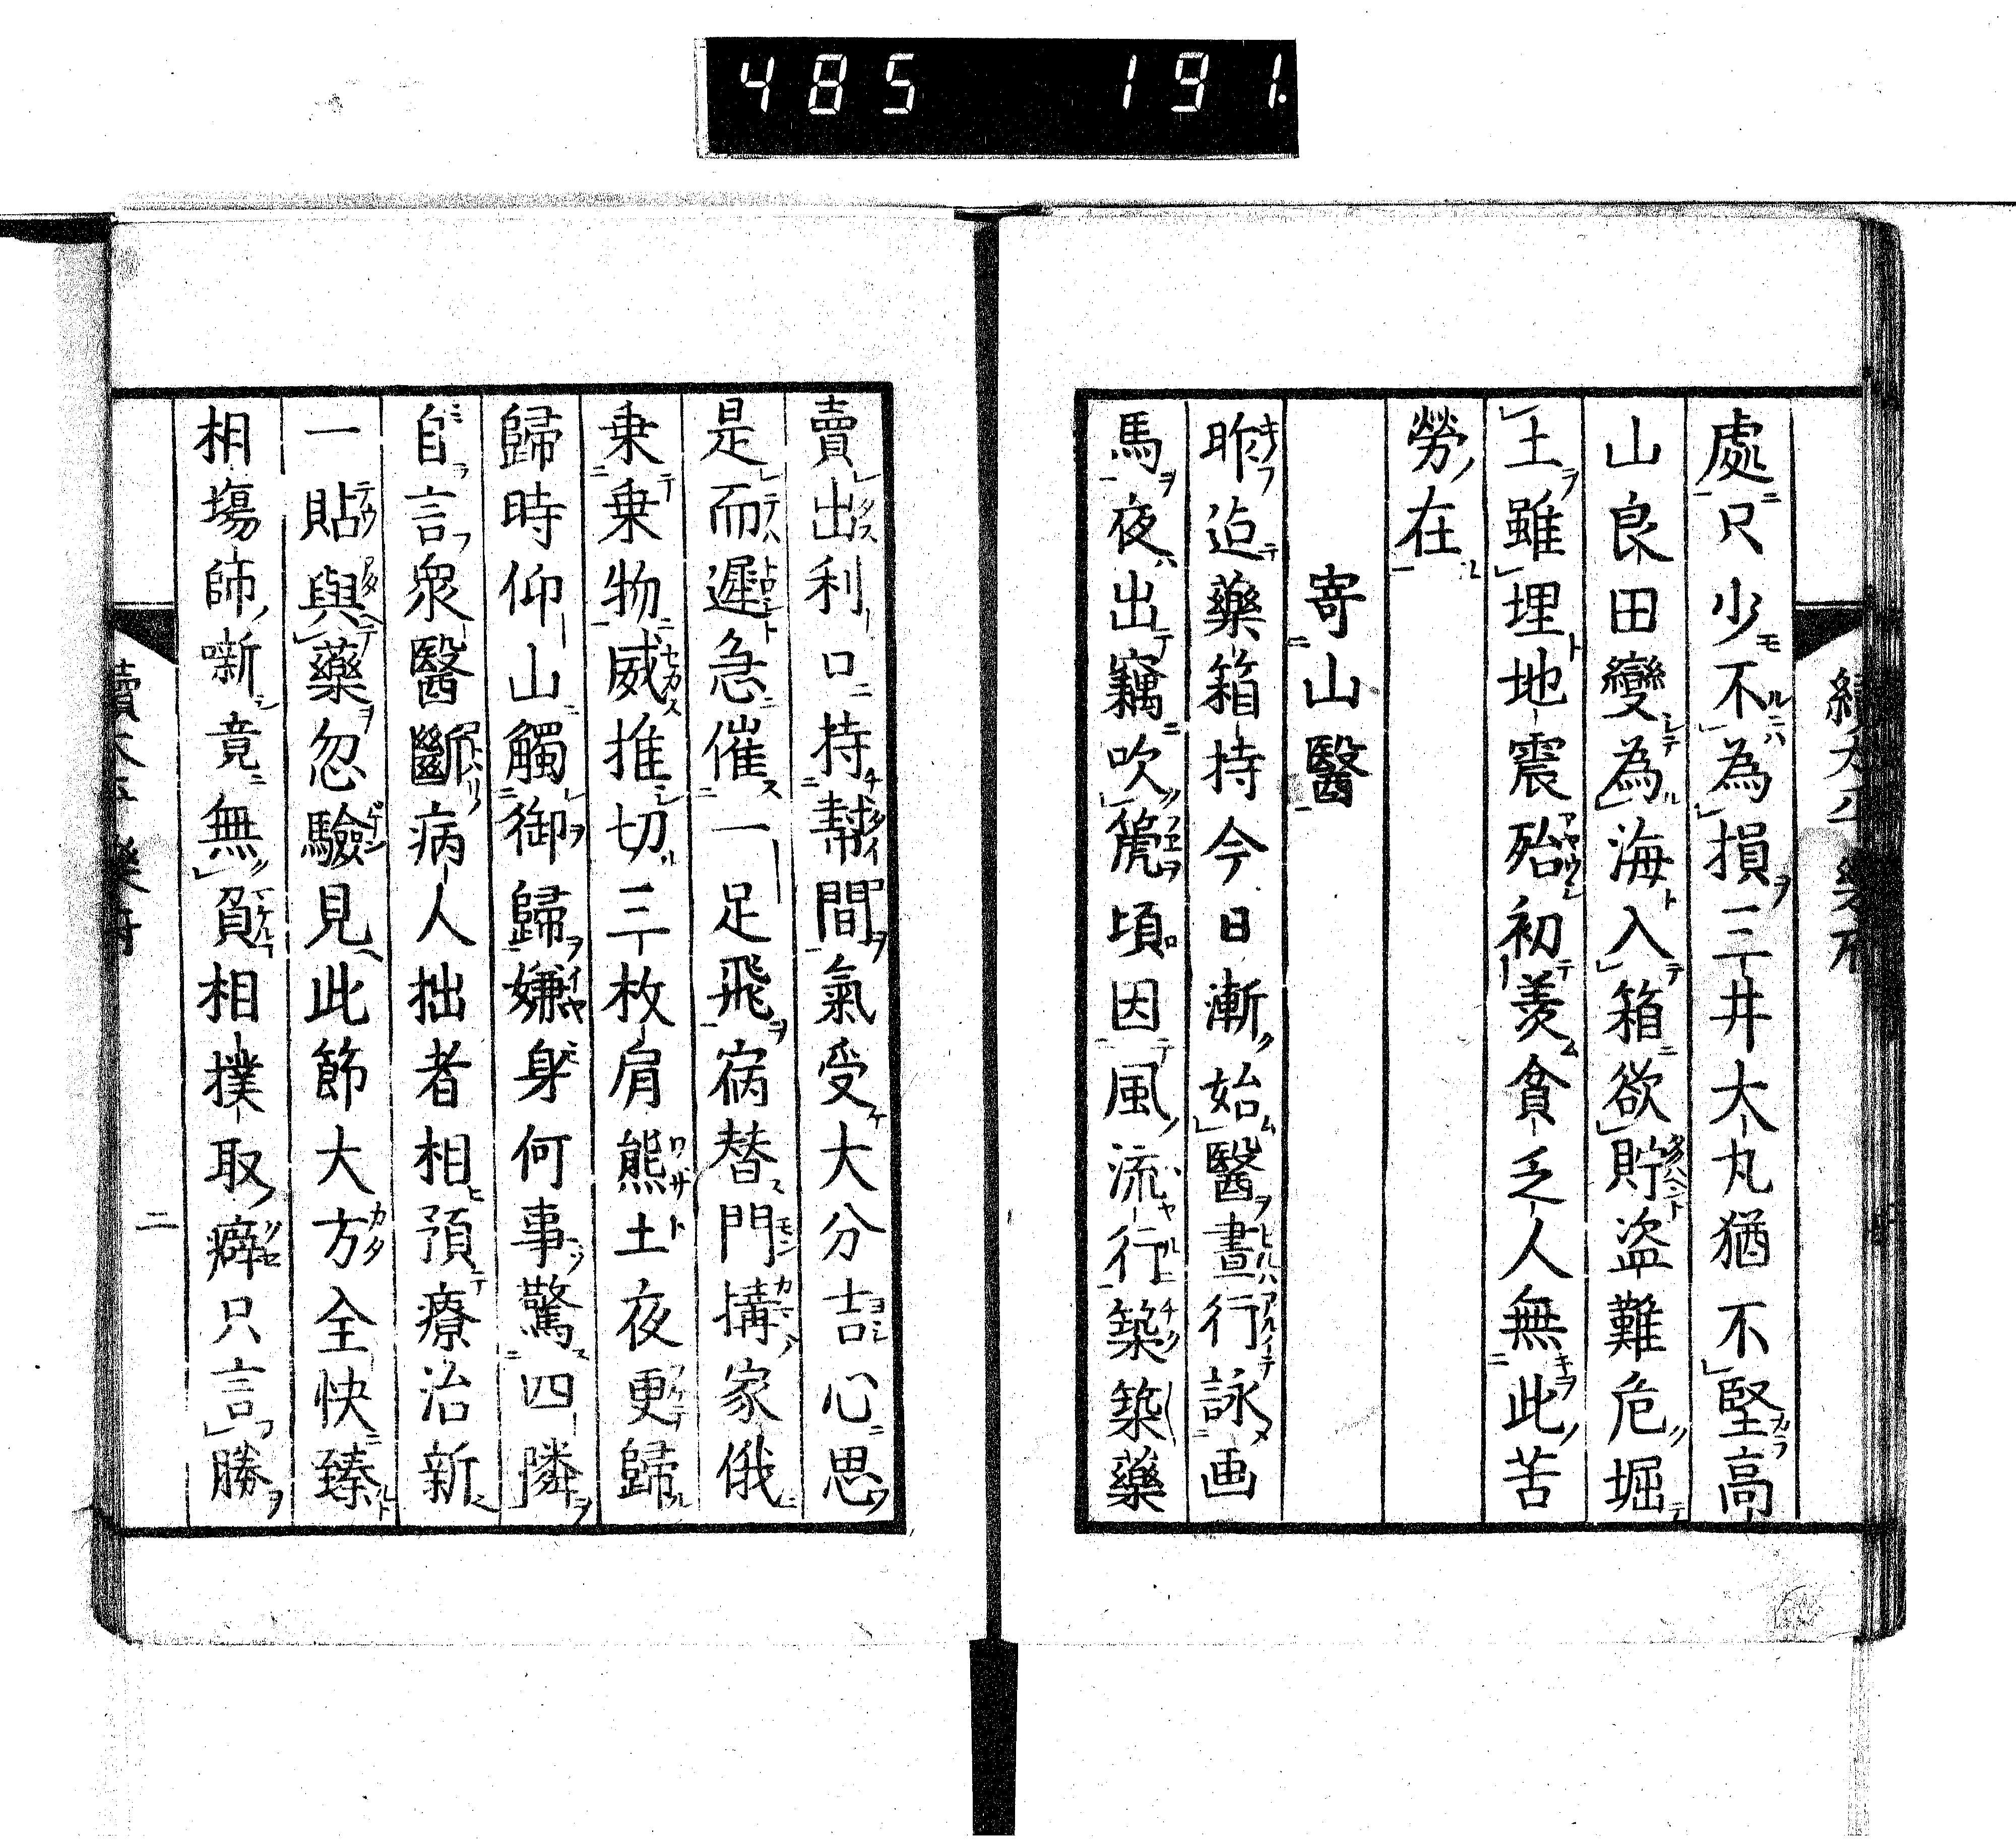 485 191.
處尺少不為損三井大丸猶不堅高
山良田變為海入箱欲貯盜難危堀
土雖埋地震殆初羨貧乏人無此苦
勞在
寄山醫
昨迠藥箱持今日漸始醫晝行詠画
馬夜出竊吹篪頃因風流行築築藥
賣出利口持幇間氣受大分吉心思
是而遲急催一足飛病替門搆家俄
乗乗物威推切三枚肩熊土夜更歸
歸時仰山觸御歸嫌身何事驚四隣
自言衆醫斷病人拙者相預療治新
一貼與藥忽驗見此節大方全快臻
相塲師噺竟無負相撲取癖只言勝
二